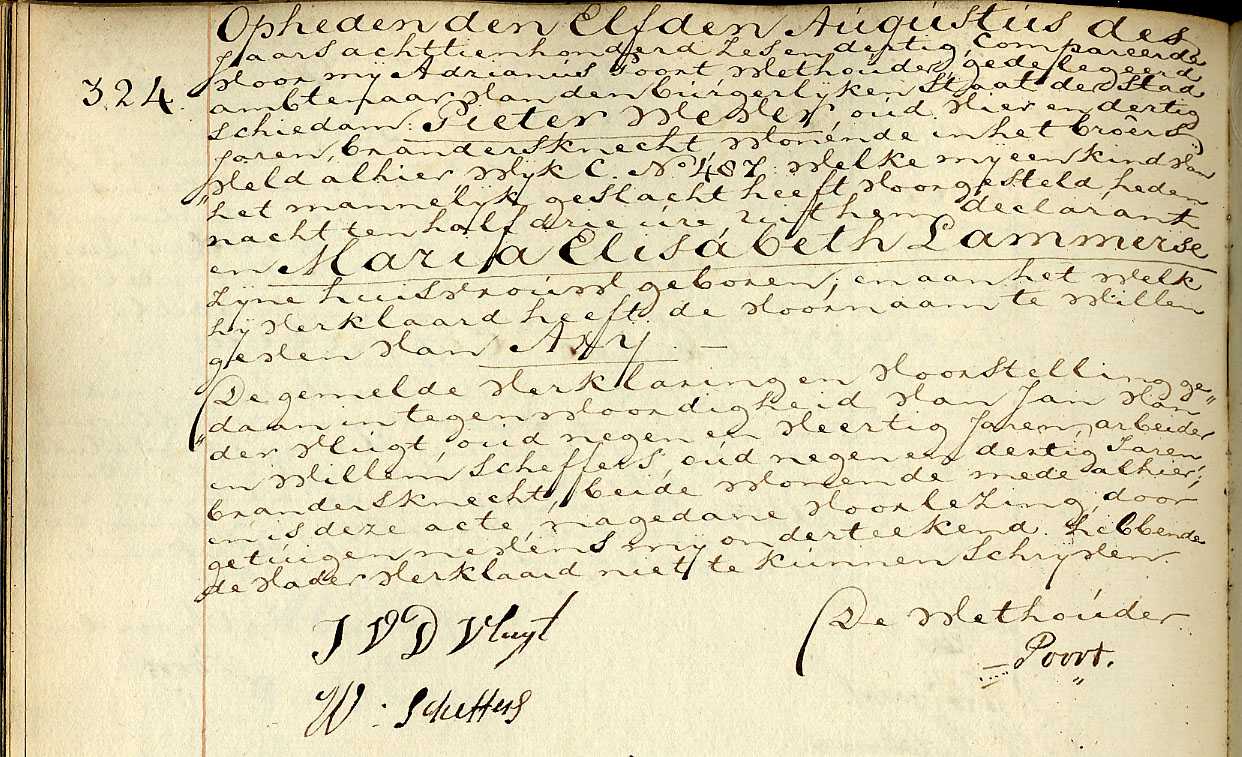 Opheden den Elfden Augustus des
324. Jaars achttienhonderd Zesendertig, Compareerde
voor mij Adrianus Poort, Wethouder, gedelegeerd
ambtenaar van den burgerlyken Staat der Stad
Schiedam: Pieter Wever, oud vier en dertig
Jaren, brandersknecht, Wonende in het broers,
veld alhier Wyk C. No 487. Welke my een kind van
het mannelyk geslacht heeft voorgesteld, heden
nacht ten half drie ure uit hem declarant
en Maria Elisabeth Lammerse
zyne huisvrouw geboren, en aan het Welk
hy verklaard heeft de voornaam te Willen
geven van Ary. —
De gemelde verklaring en voorstelling ge„
„daan in tegenwoordigheid van Jan van
der Vlugt, oud negen en veertig Jaren, arbeider
en Willem Scheffers, oud negen en dertig Jaren,
brandersknecht, beide Wonende mede alhier,
en is deze acte, na gedane voorlezing, door
getuigen nevens my onderteekend. hebbende
de vader verklaard niet te kunnen Schryven.
De Wethouder
J V D Vlugt
Poort.
W. Scheffers